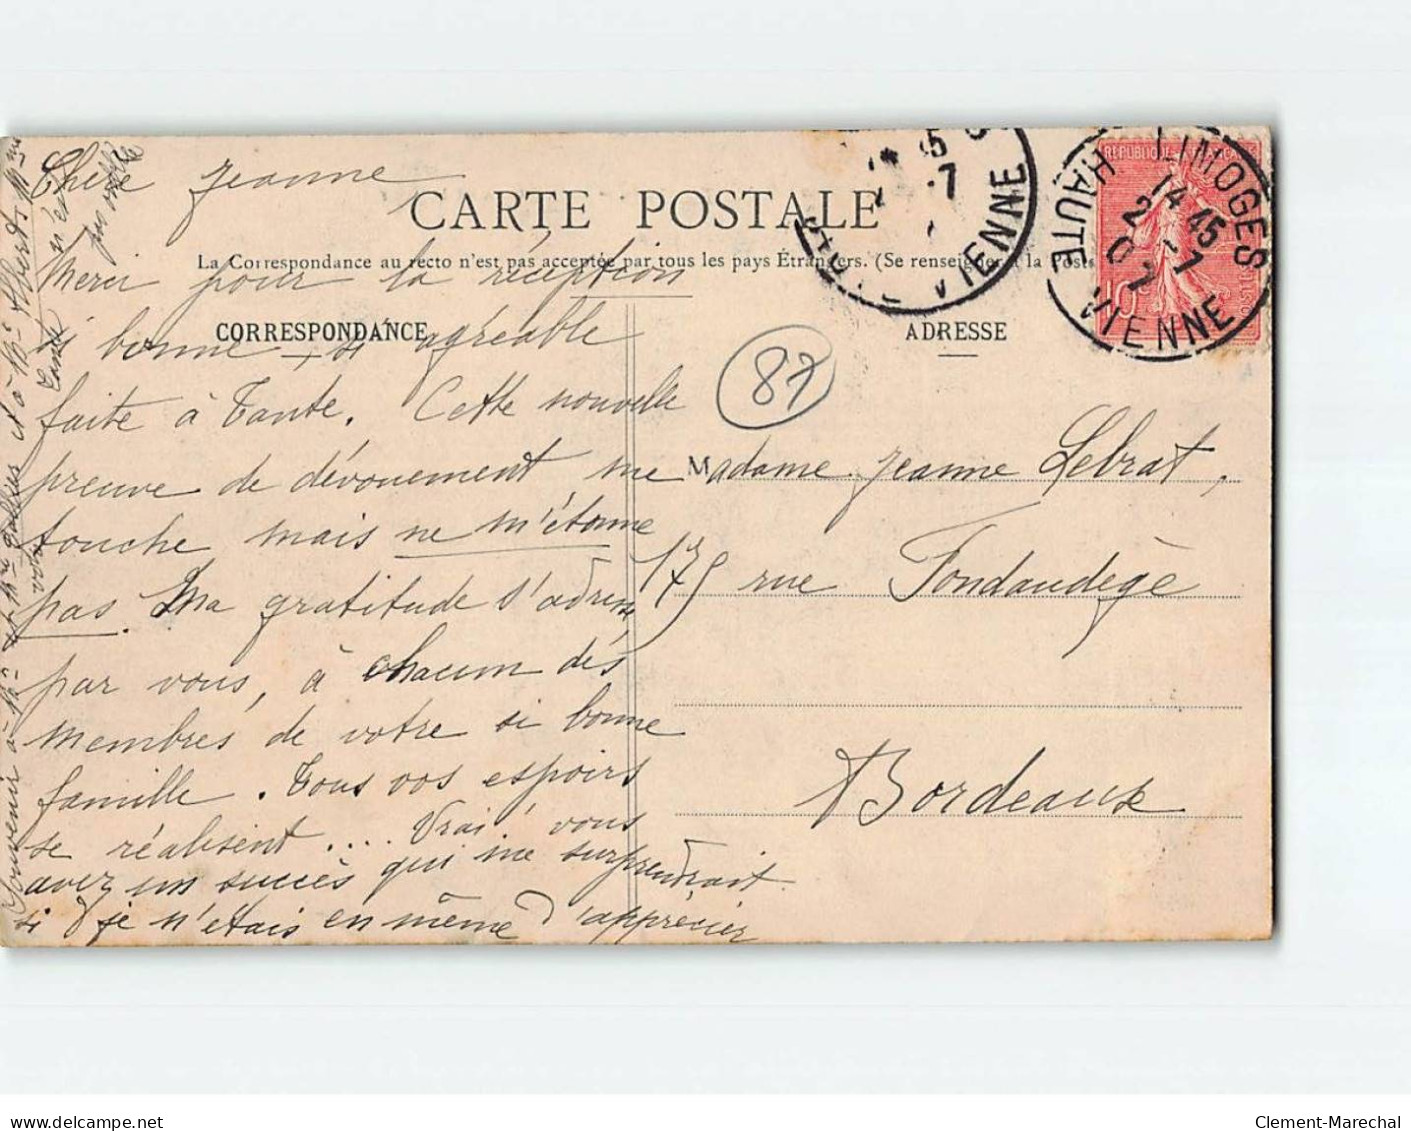 Chère Jeanne
CARTE POSTALE
La Correspondance au recto n'est pas acceptée par tous les pays Étrangers. (Se renseigner à la Poste
CORRESPONDANCE
ADRESSE
Merci pour la réception
si bonne, si agréable
faite à Tante. Cette nouvelle
preuve de dévouement me
touche mais ne m'étonne
pas. Ma gratitude s'adresse
par vous, à chacun des
membres de votre si bonne
famille. Tous vos espoirs
se réalisent .... Vrai! vous
avez un succès qui me surprendrait
si je n'étais en même d'apprécier
Madame Jeanne Lebrat,
175 rue Fondaudège
Bordeaux
87
LIMOGES
14 45
2 - 7
07
HAUTE VIENNE
REPUBLIQUE
10
VIENNE
45
7
Souvenir à Mr et Mme
et à Mr Albert
n'est
pas
Clement-Marechal